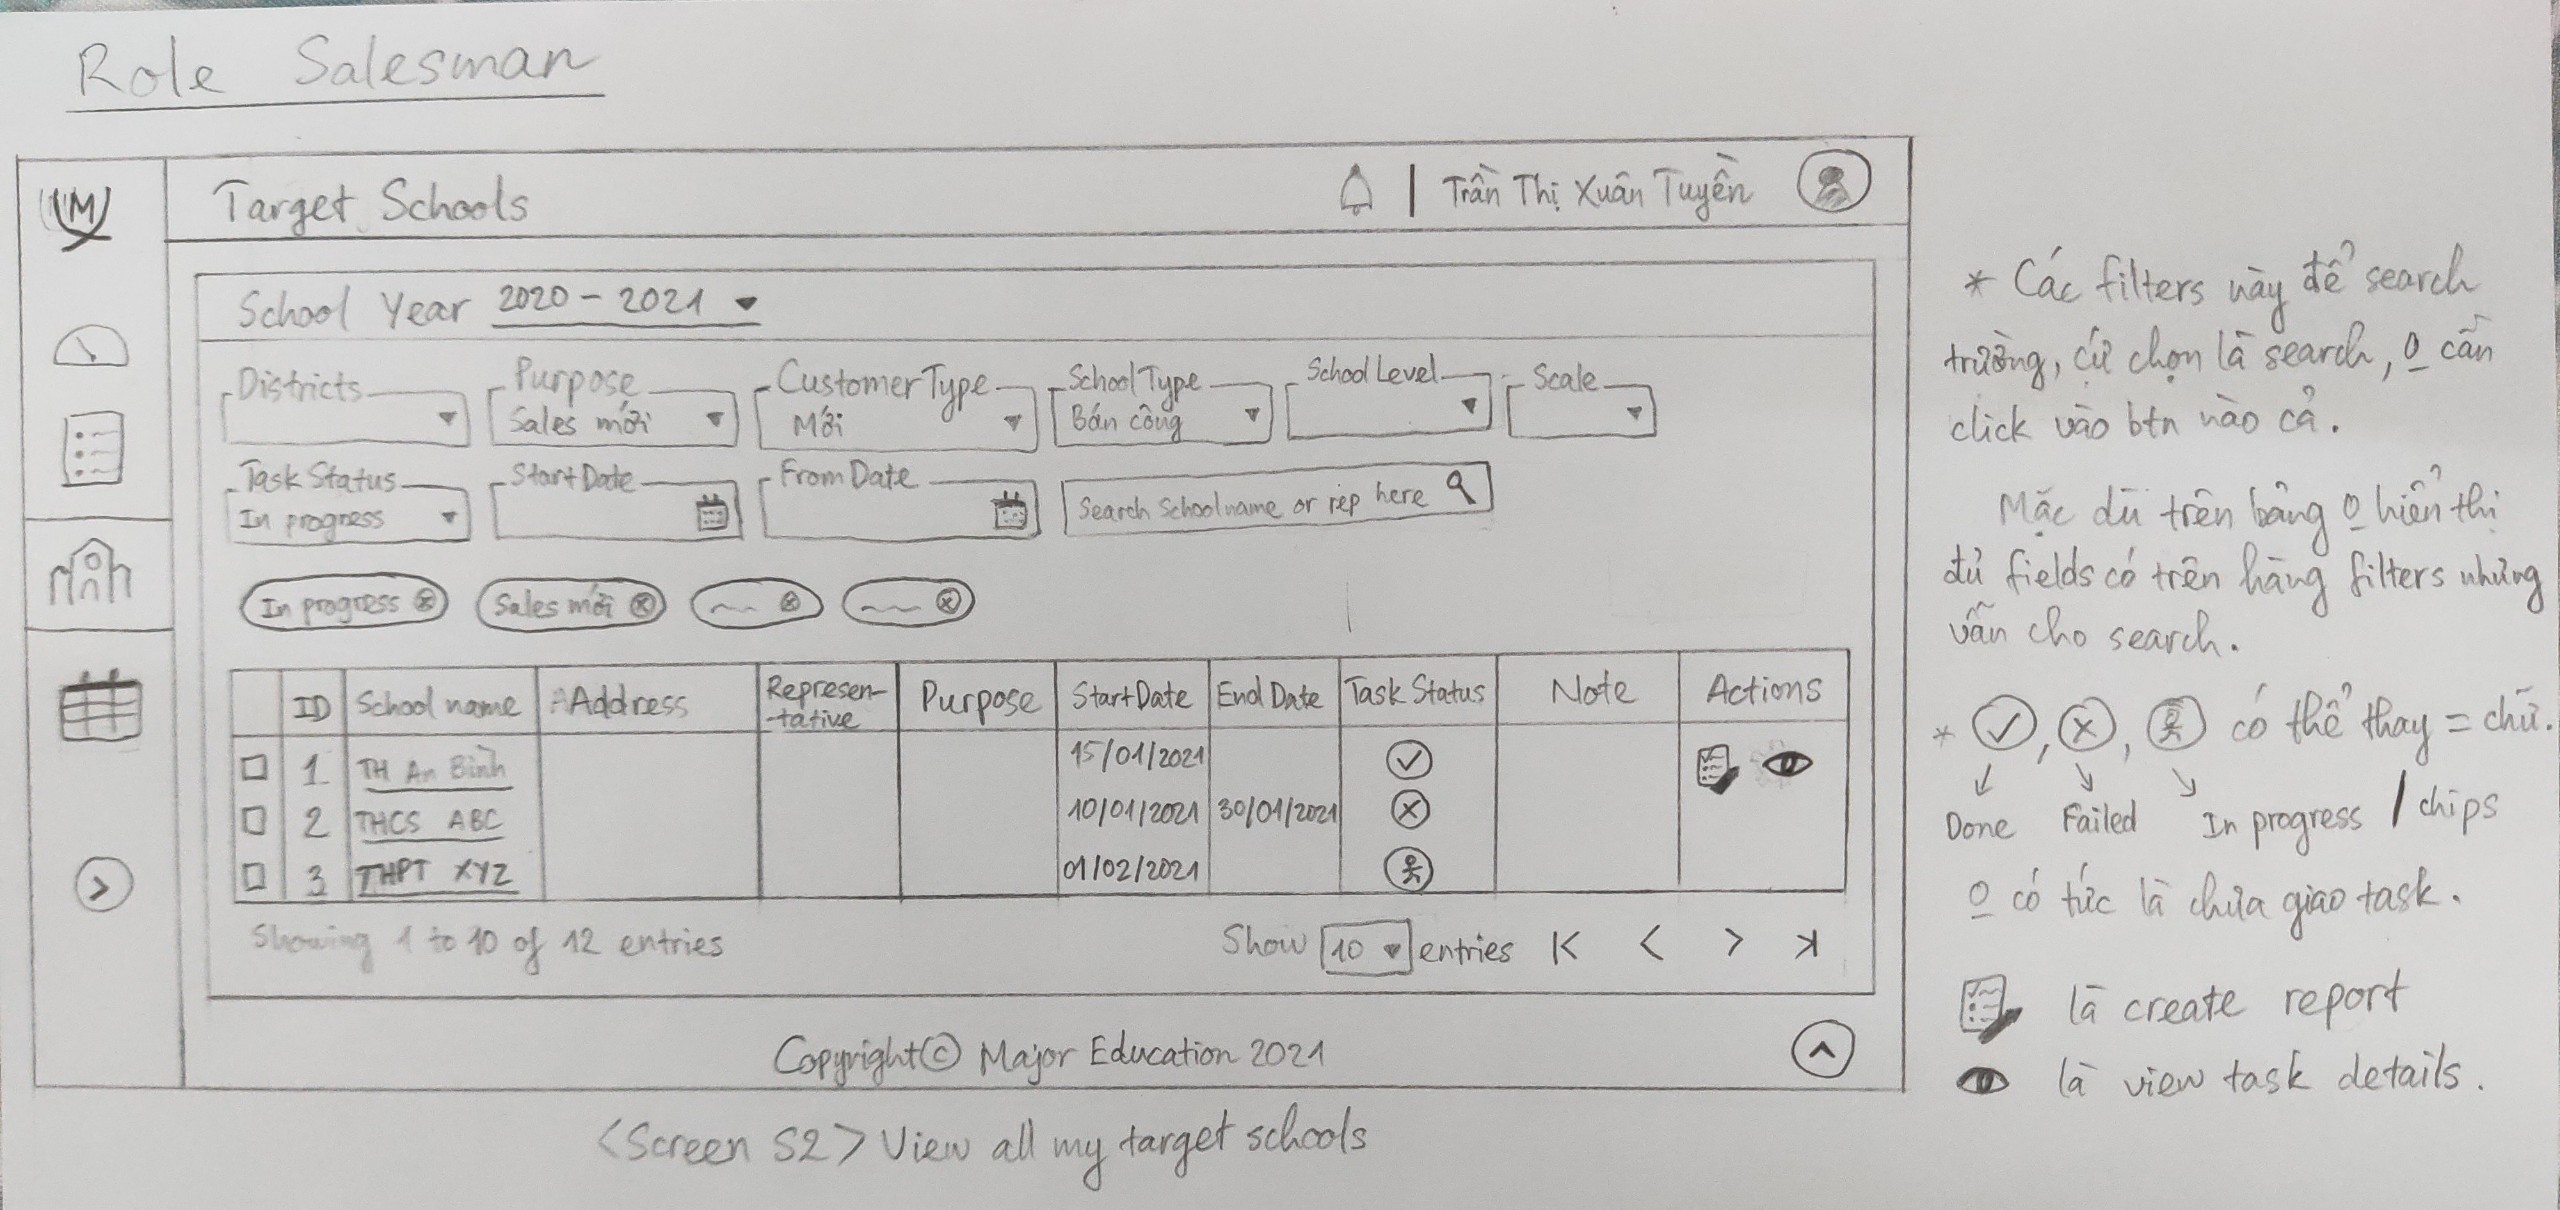 Role Salesman
M
Target Schools
Trần Thị Xuân Tuyền
School Year 2020 - 2021
Districts
Purpose
Sales mới
Customer Type
Mới
School Type
Bán công
School Level
Scale
Task Status
In progress
Start Date
From Date
Search School name or rep here
In progress
Sales mới
ID School name Address Represen-tative Purpose Start Date End Date Task Status Note Actions
1 TH An Bình 15/01/2021
2 THCS ABC 10/01/2021 30/01/2021
3 THPT XYZ 01/02/2021
Showing 1 to 10 of 12 entries
Show 10 entries
Copyright © Major Education 2021
<Screen S2> View all my target schools
* Các filters này để search
trường, cứ chọn là search, o cần
click vào btn nào cả.
Mặc dù trên bảng o hiển thị
đủ fields có trên hàng filters nhưng
vẫn cho search.
* , , có thể thay = chữ.
Done Failed In progress / chips
o có tức là chưa giao task.
là create report
là view task details.